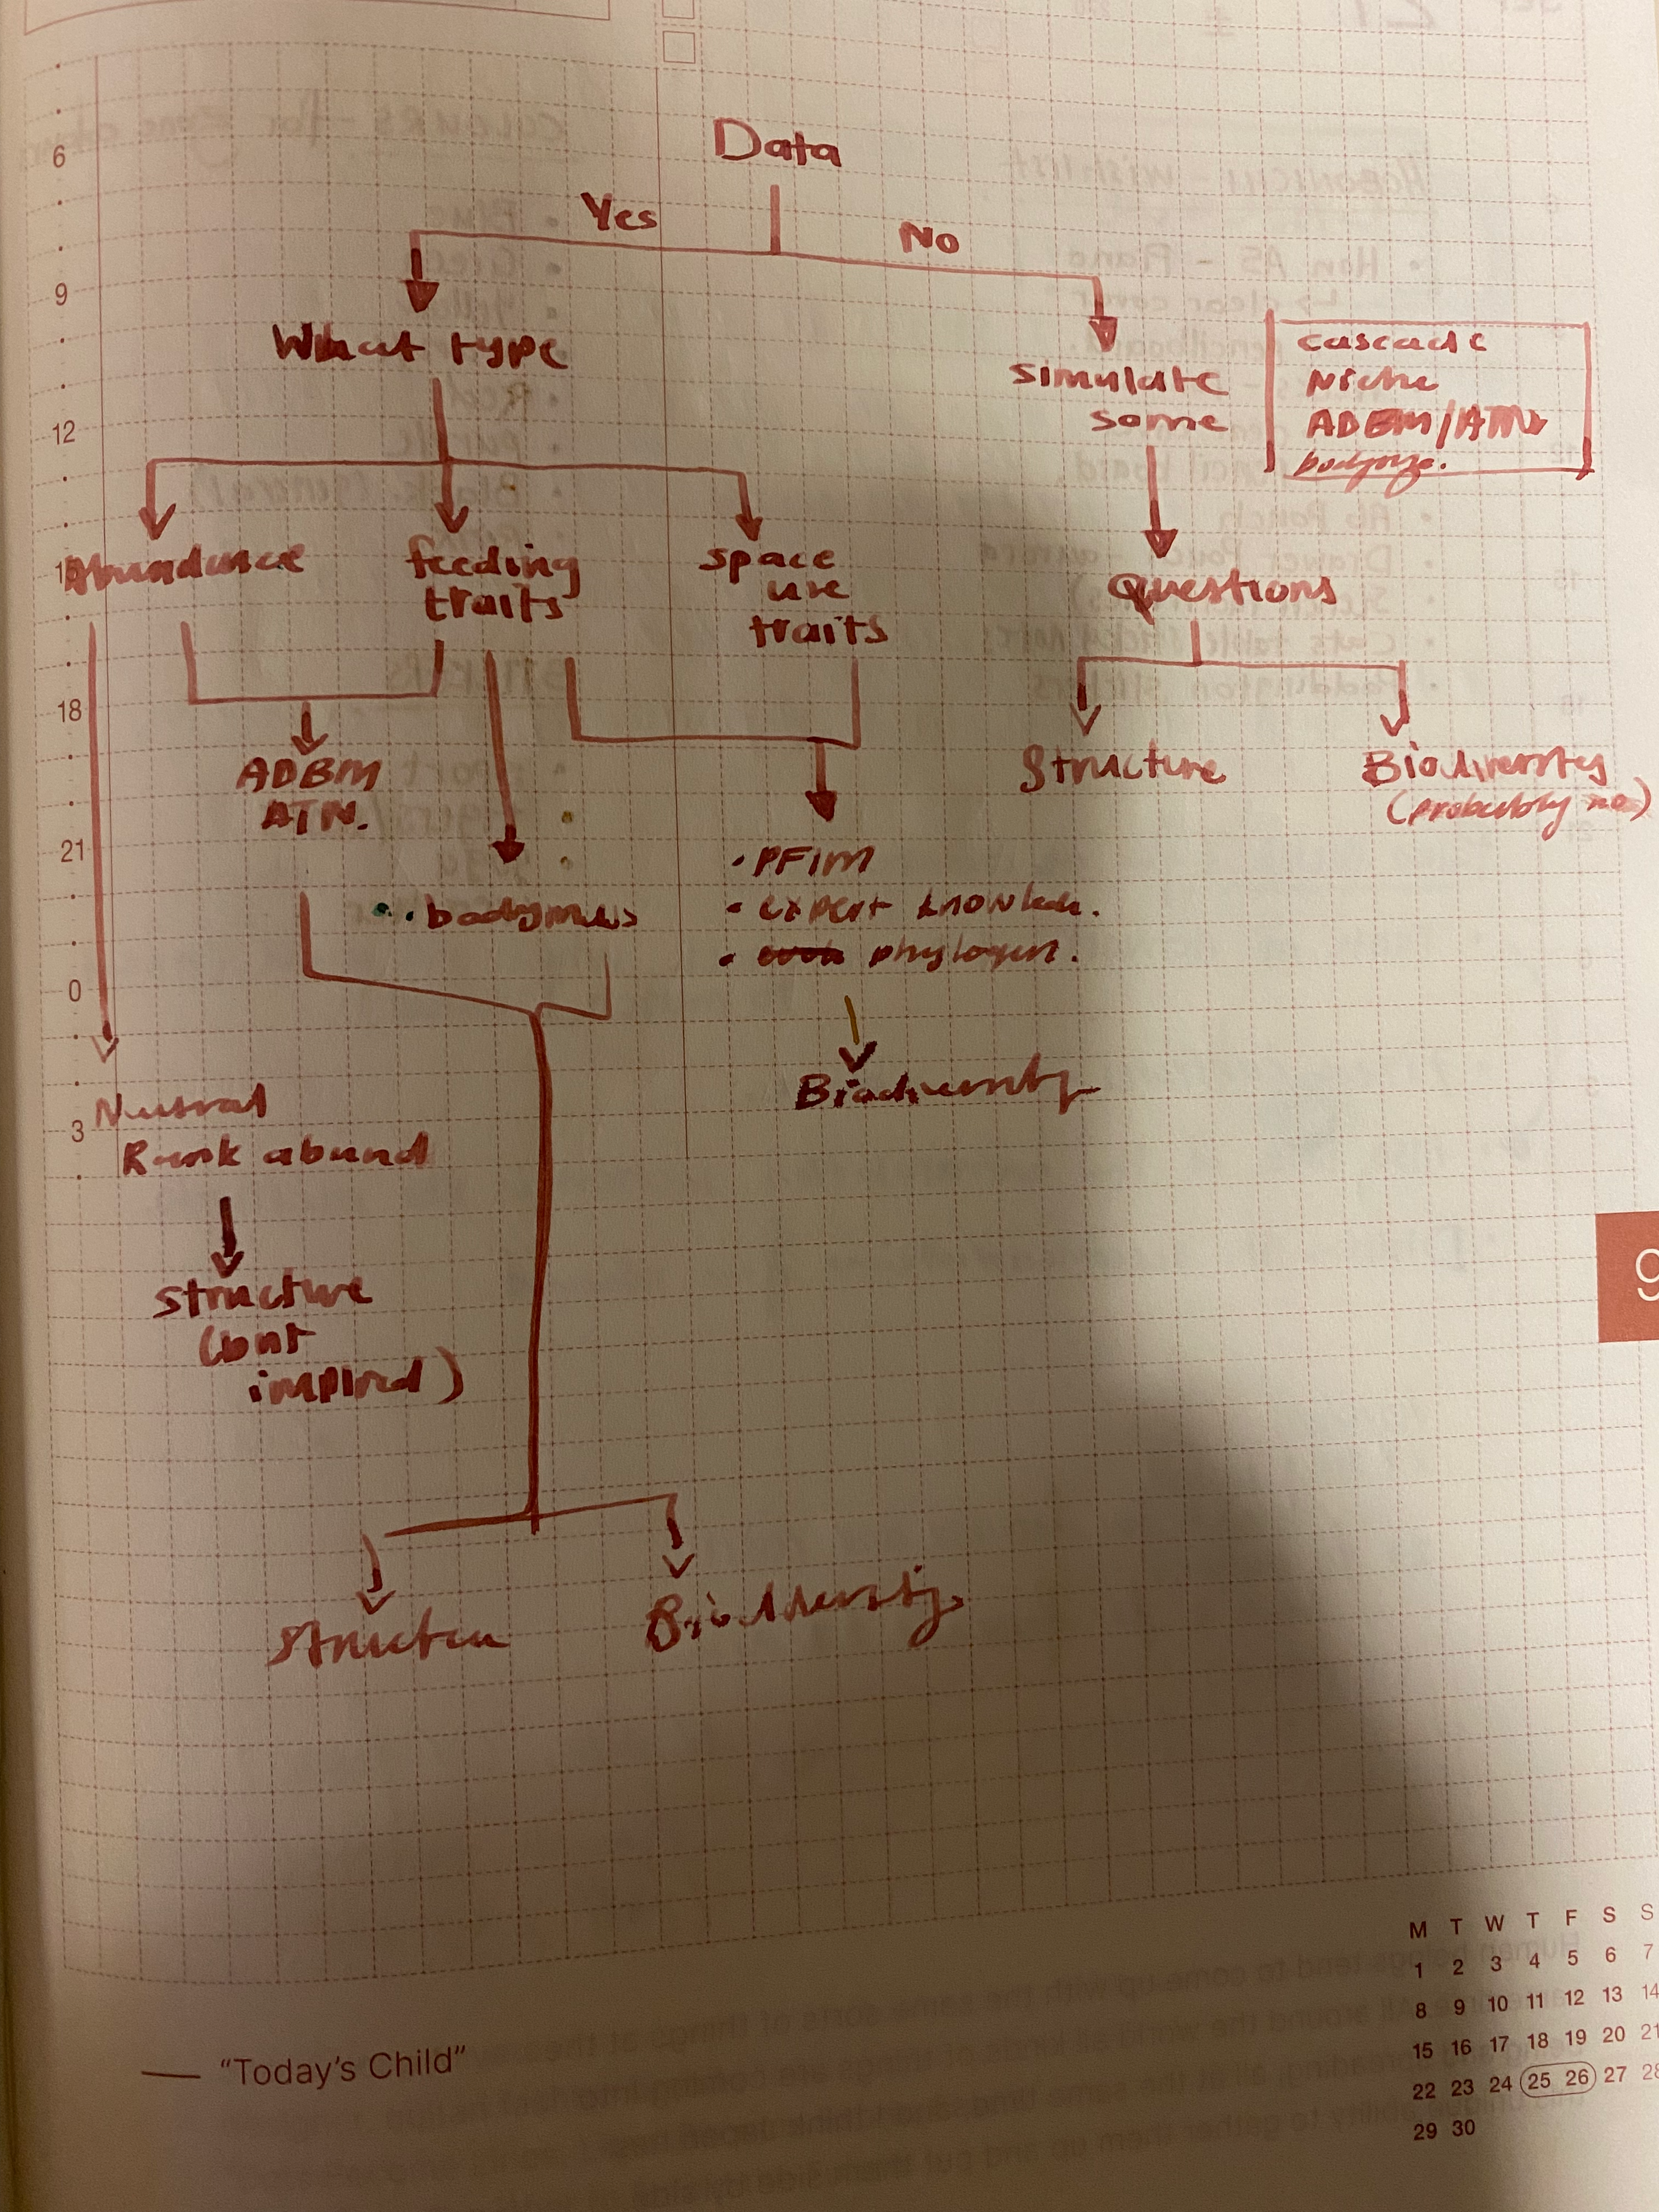 Data
Yes
No
What type
simulate
some
cascade
Niche
ADBM/ATN
bodysize.
Abundance
feeding
traits
space
use
traits
Questions
ADBM
ATN.
Structure
Biodiversity
(probably no)
• PFIM
• expert
• phylogen.
• bodymass
Biodiversity
Neutral
Rank abund
structure
(but
Biodiversity
6
9
12
18
21
0
3
9
— "Today's Child"
M T W T F S S
1 2 3 4 5 6 7
8 9 10 11 12 13 14
15 16 17 18 19 20 21
22 23 24 25 26 27 28
29 30